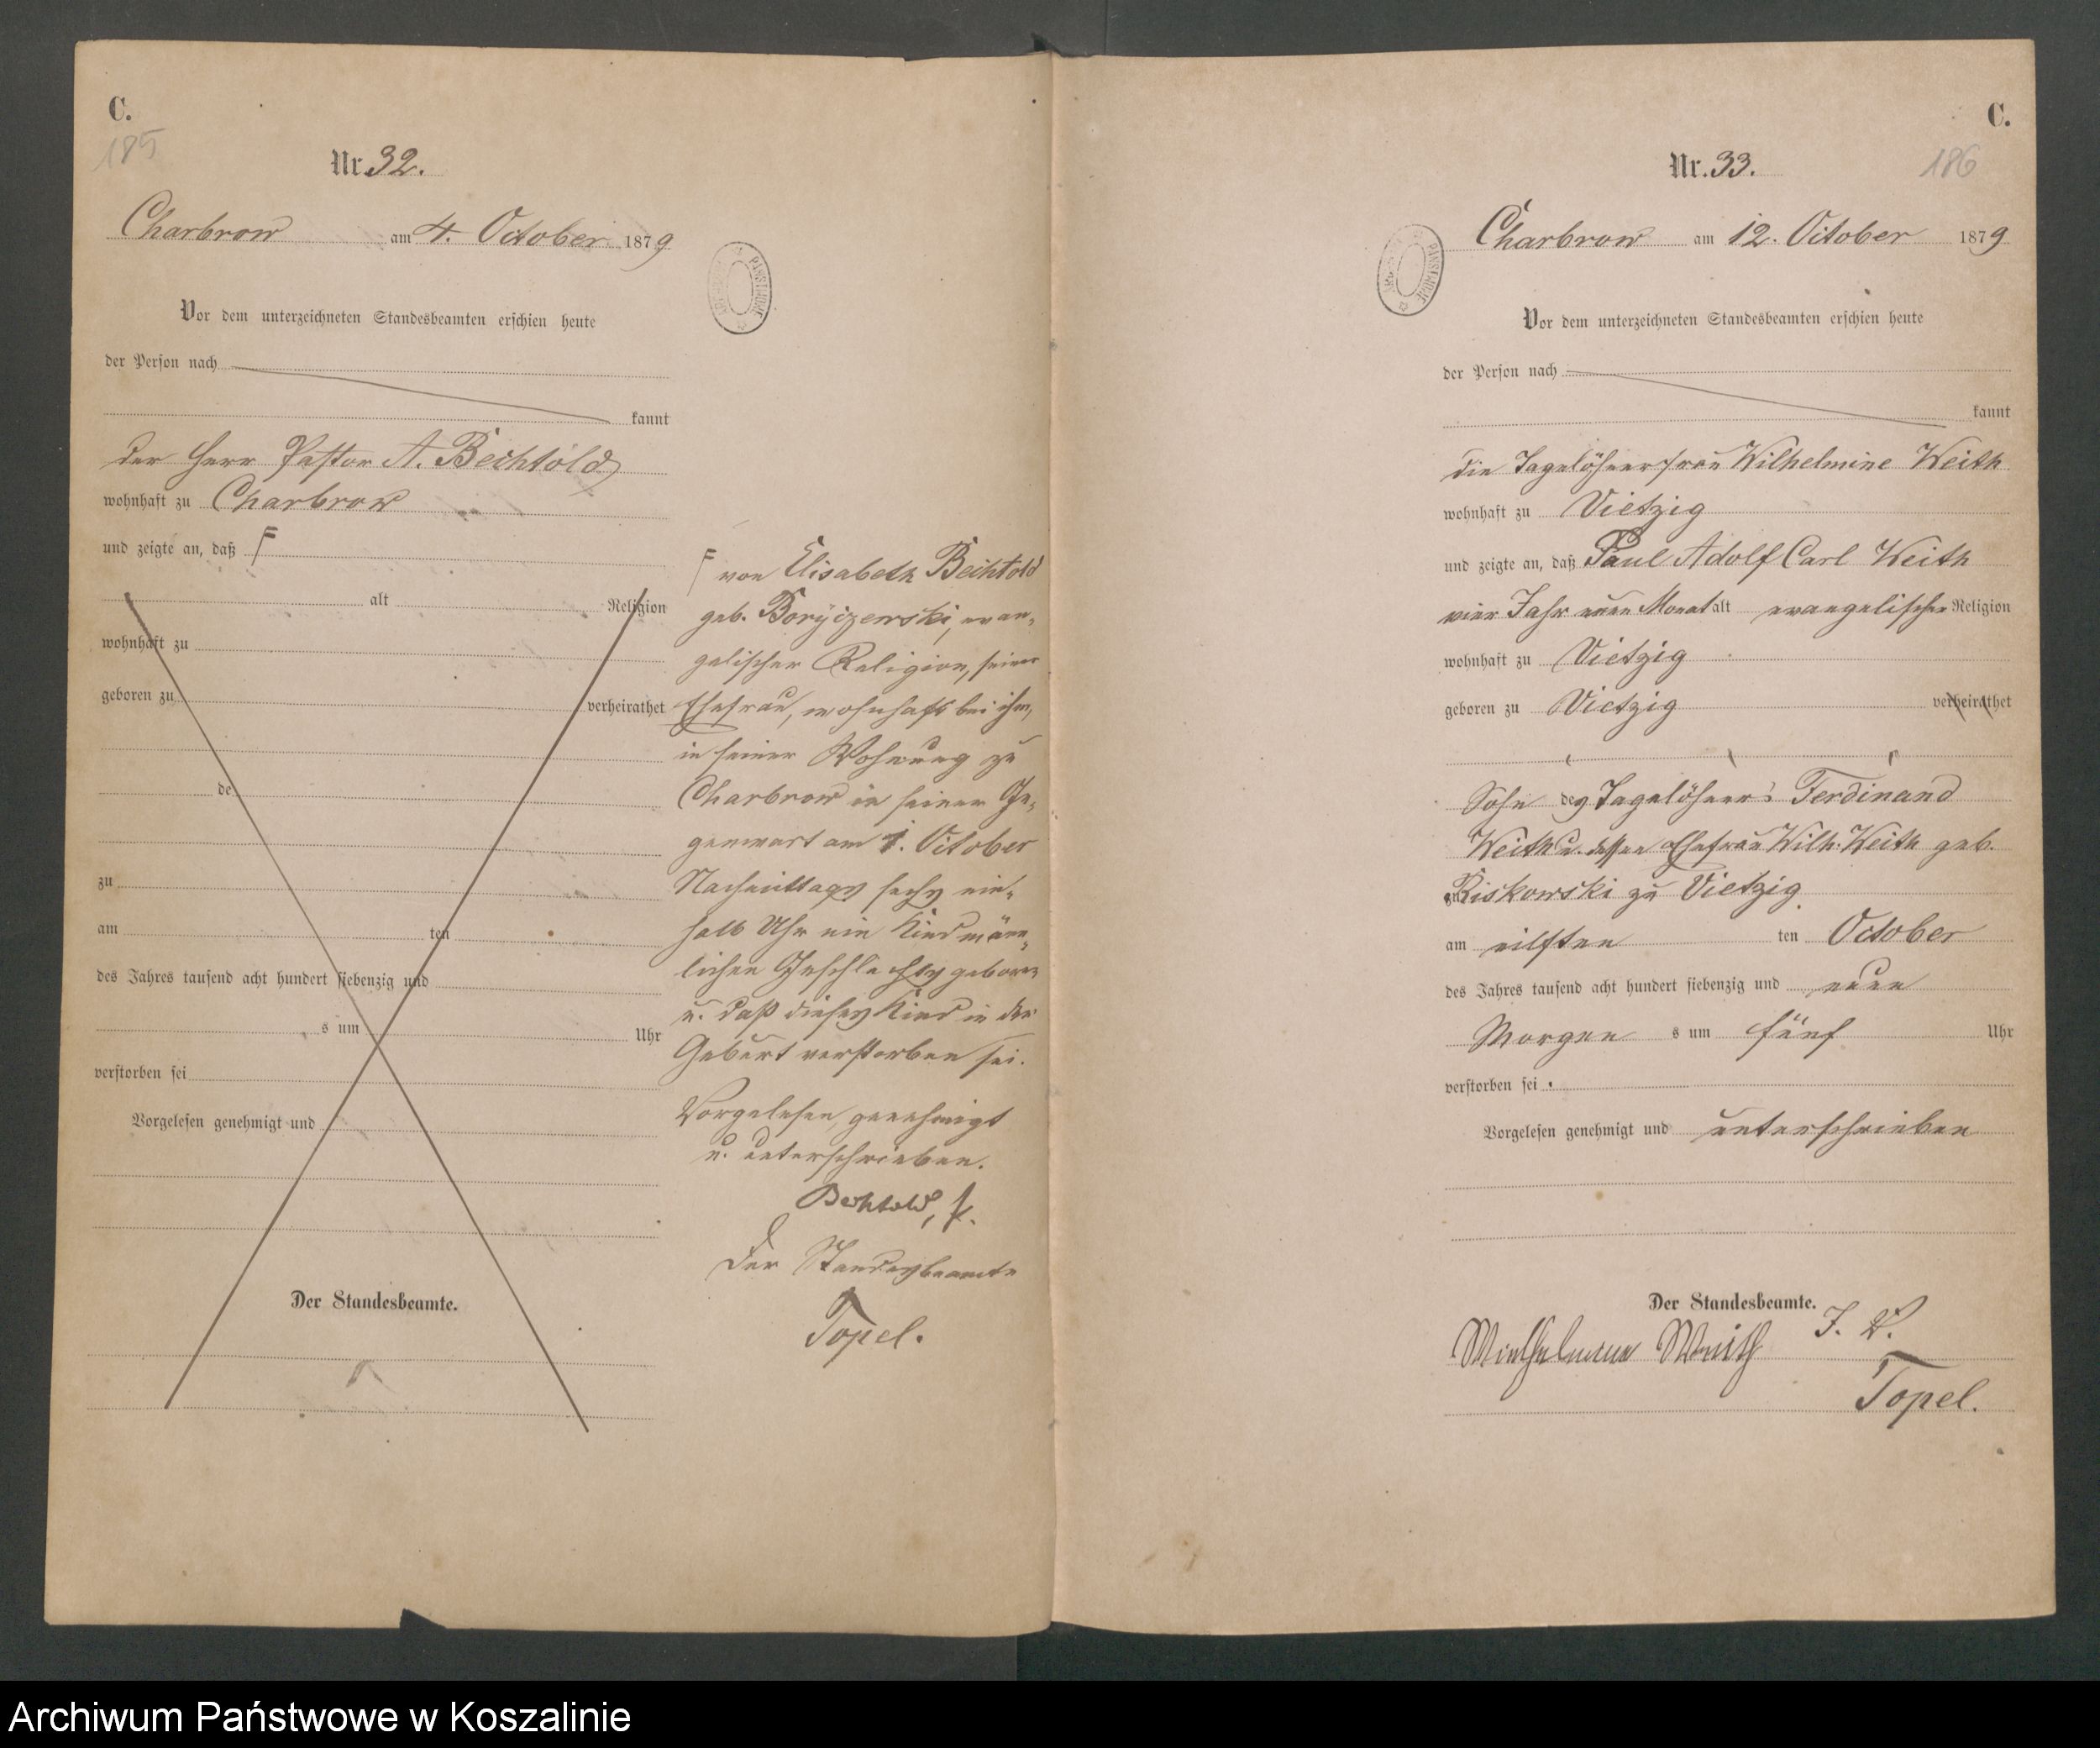 C.
185
Nr. 32.
Charbrow am 4. October 1879
Vor dem unterzeichneten Standesbeamten erschien heute
der Person nach
kannt
der Herr Pastor A. Bechtold
wohnhaft zu Charbrow
und zeigte an, daß F
alt Religion
wohnhaft zu
geboren zu verheirathet
de
zu
am ten
des Jahres tausend acht hundert siebenzig und
s um Uhr
verstorben sei
Vorgelesen genehmigt und
Der Standesbeamte.
F von Elisabeth Bechtold
geb. Boryczewski, evan-
gelischer Religion, seiner
Ehefrau, wohnhaft bei ihm,
in seiner Wohnung zu
Charbrow in seiner Ge-
genwart am 1. October
Nachmittags sechs ein-
halb Uhr ein Kind männ-
lichen Geschlechts geboren
u. daß dieses Kind in der
Geburt verstorben sei.
Vorgelesen, genehmigt
u. unterschrieben.
Bechtold,
Der Standesbeamte
Topel.
C.
186
Nr. 33.
Charbrow am 12. October 1879
Vor dem unterzeichneten Standesbeamten erschien heute
der Person nach
kannt
die Tagelöhnerfrau Wilhelmine Weith
wohnhaft zu Vietzig
und zeigte an, daß Paul Adolf Carl Weith
vier Jahr neun Monat alt evangelischer Religion
wohnhaft zu Vietzig
geboren zu Vietzig verheirathet
Sohn des Tagelöhner's Ferdinand
Weith u. dessen Ehefrau Wilh. Weith geb.
zu Kiskowski zu Vietzig
am eilften ten October
des Jahres tausend acht hundert siebenzig und neun
Morgen s um fünf Uhr
verstorben sei.
Vorgelesen genehmigt und unterschrieben
Der Standesbeamte.
J. V.
Wielhelmine Weith
Topel.
Archiwum Państwowe w Koszalinie